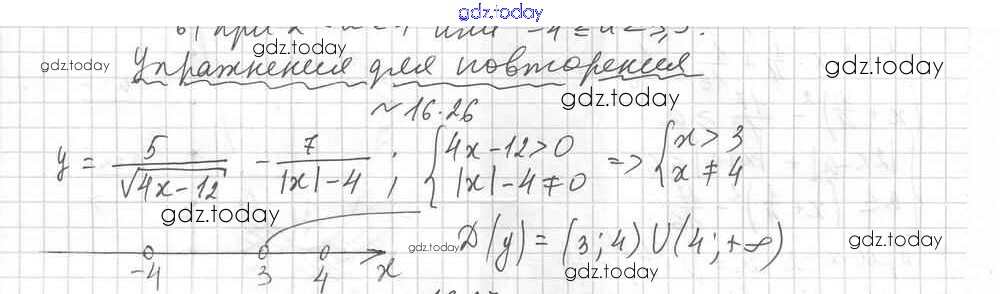 gdz.today
б) при 2
gdz.today
Упражнения для повторения
gdz.today
gdz.today
gdz.today
~16.26
y = 5/√(4x-12) - 7/(|x|-4); {4x-12>0 |x|-4≠0 => {x>3 x≠4
gdz.today
gdz.today
D(y) = (3;4)∪(4;+∞)
gdz.today
-4 3 4 x
gdz.today